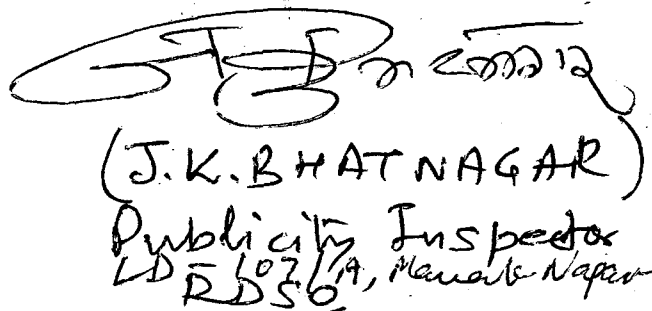 (J.K.BHATNAGAR)
Publicity Inspector
LD-107/A, Manak Nagar
RDSO